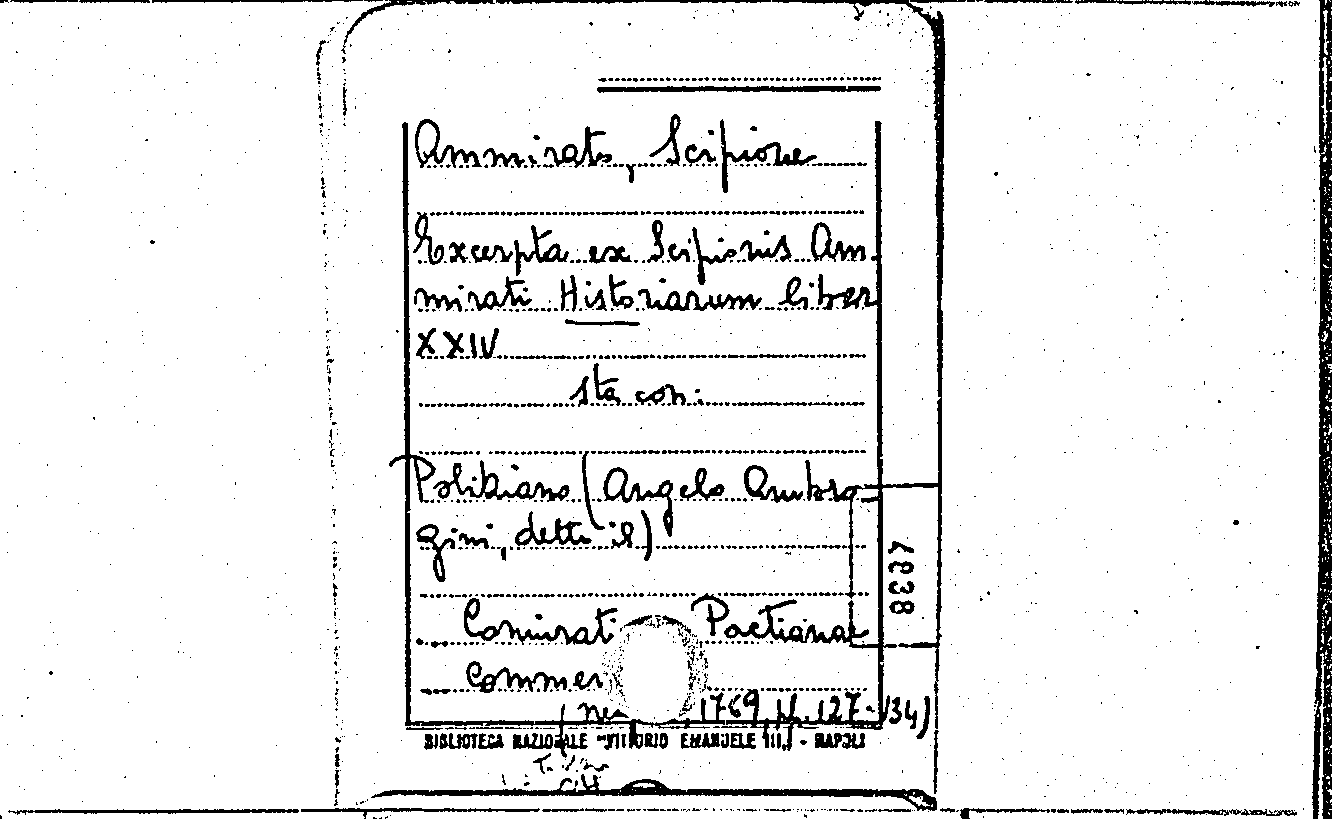 Ammirato, Scipione
Excerpta ex Scipionis Am-
mirati Historiarum liber
XXIV
sta con:
Politiano (Angelo Ambro
gini, detto il)
... Coniurati Pactianae
... Commen
(Ne , 1769, pp. 127-134)
4838
BIBLIOTECA NAZIONALE "VITTORIO EMANUELE III" - NAPOLI